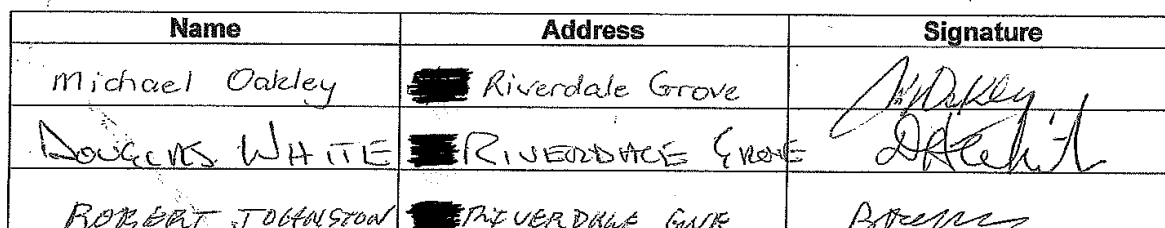 Name Address Signature
Michael Oakley Riverdale Grove M Oakley
DOUGLAS WHITE RIVERDALE GROVE
ROBERT JOHNSTON RIVERDALE